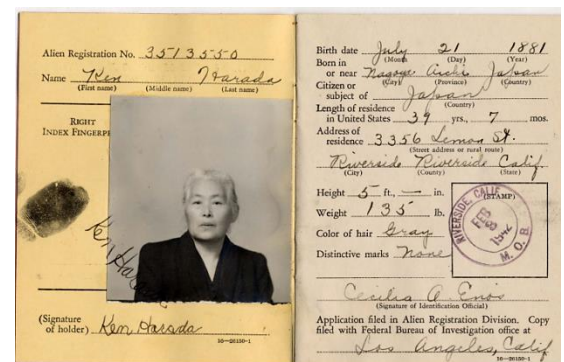 Alien Registration No. 3513550
Name Ken Harada
(First name) (Middle name) (Last name)
RIGHT
INDEX FINGERPR
Ken Harada
(Signature
of holder) Ken Harada
16—26150-1
Birth date July 21 1881
(Month) (Day) (Year)
Born in
or near Nagoya Aichi Japan
(City) (Province) (Country)
Citizen or
subject of Japan
(Country)
Length of residence
in United States 39 yrs., 7 mos.
Address of
residence 3356 Lemon St.
(Street address or rural route)
Riverside Riverside Calif
(City) (County) (State)
Height 5 ft., — in.
Weight 135 lb.
Color of hair Gray
Distinctive marks None
(STAMP)
RIVERSIDE, CALIF.
FEB
1942
M. O. B.
Cecilia A. Enos
(Signature of Identification Official)
Application filed in Alien Registration Division. Copy
filed with Federal Bureau of Investigation office at
Los Angeles, Calif
16—26150-1